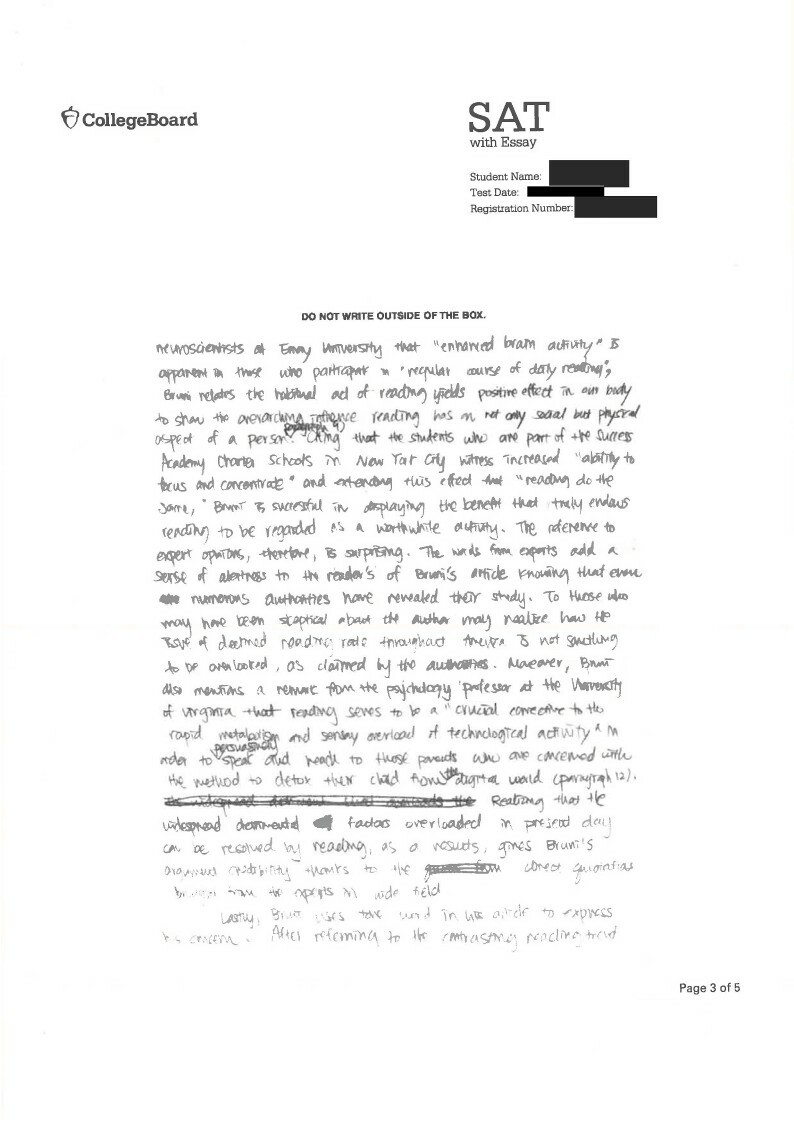 CollegeBoard
SAT
with Essay
Student Name:
Test Date:
Registration Number:
DO NOT WRITE OUTSIDE OF THE BOX.
neuroscientists at Emory University that "enhanced brain activity" is
apparent in those who participate in "regular course of daily reading",
Bruni relates the habitual act of reading yields positive effect in our body
to show the overarching influence reading has on not only social but physical
aspect of a person. (paragraph 9) Citing that the students who are part of the Success
Academy Charter Schools in New York City witness increased "ability to
focus and concentrate" and extending this effect that "reading do the
same," Bruni is successful in displaying the benefit that truly endows
reading to be regarded as a worthwhile activity. The reference to
expert opinions, therefore, is surprising. The words from experts add a
sense of alertness to the reader's of Bruni's article knowing that even
numerous authorities have revealed their study. To those who
may have been skeptical about the author may realize how the
issue of declined reading rate throughout America is not something
to be overlooked, as claimed by the authorities. Moreover, Bruni
also mentions a remark from the psychology professor at the University
of Virginia that reading serves to be a "crucial corrective to the
rapid metabolism and sensory overload of technological activity" in
order to persuasively speak and reach to those parents who are concerned with
the method to detox their child from the digital world (paragraph 12).
Realizing that the
widespread detrimental factors overloaded in present day
can be resolved by reading, as a results, gives Bruni's
argument credibility thanks to the direct quotations
from the experts in wide field
Lastly, Bruni uses tone word in his article to express
his concern. After referring to the contrasting reading trend
Page 3 of 5